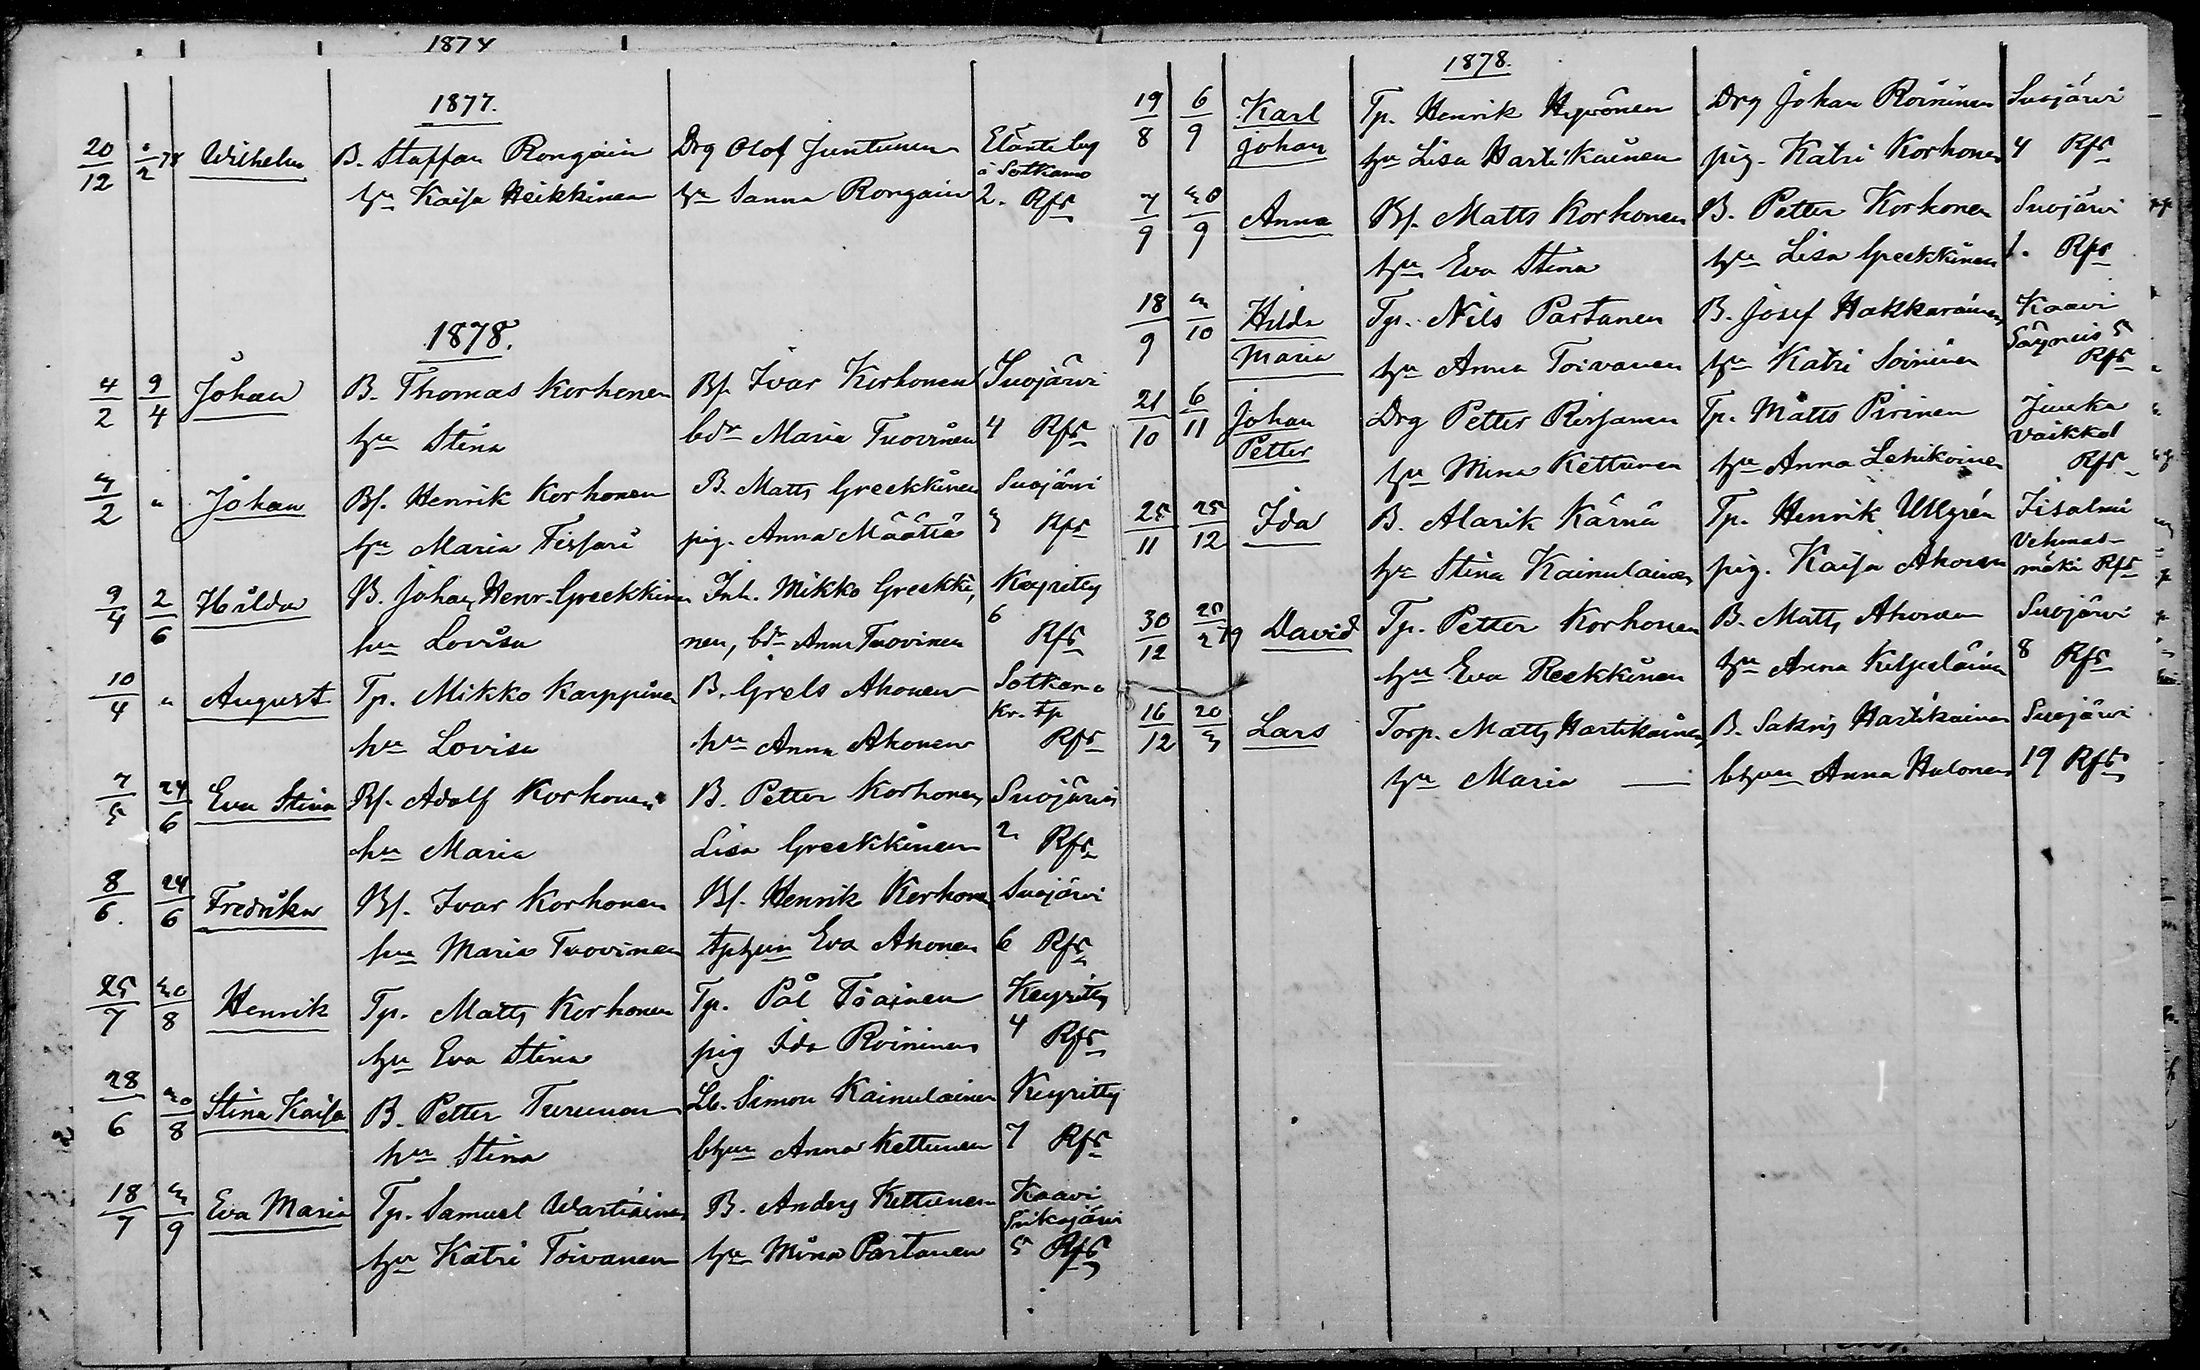 1874
1877.
20/12 2/2 78 Wilhelm B. Staffan Rongain Drg Olof Juntunen
hu Kaisa Heikkinen hu Sanna Rongain 2. Rfs
i Sotkamo
1878.
4/2 9/4 Johan B. Thomas Korhonen Bf. Ivar Korhonen Suojärvi
hu Stina bdr Maria Tuovinen 4 Rfs
7/2 " Johan Bf. Henrik Korhonen B. Matts Greekkinen Suojärvi
hu Maria pig. Anna Määttä 3 Rfs
9/4 2/6 Hilda B. Johan Henr. Greekkinen Inh. Mikko Greekki, Keyritty
hu Lovisa nen, bdr Anna Tuovinen 6 Rfs
10/4 " August Tp. Mikko Karppinen B. Grels Ahonen Sotkamo
hu Lovisa hu Anna Ahonen Kr. tp Rfs
7/5 24/6 Eva Stina Bf. Adolf Korhonen B. Petter Korhonen Suojärvi
hu Maria Lisa Greekkinen 2 Rfs
8/6. 24/6 Fredrika Bf. Ivar Korhonen Bf. Henrik Korhonen Suojärvi
hu Maria Tuovinen tphun Eva Ahonen 6 Rfs
25/7 30/8 Henrik Tp. Matts Korhonen Tp. Pål Keyritty
hu Eva Stina pig Ida Roininen 4 Rfs
28/6 30/8 Stina Kaisa B. Petter Turunen Lb. Simon Kainulainen Keyritty
hu Stina bhun Anna Kettunen 7 Rfs
18/7 3/9 Eva Maria Tp. Samuel Wartiainen B. Anders Kettunen Kaavi
hu Katri Toivanen hu Mina Partanen 5 Rfs
1878.
19/8 6/9 Karl Tp. Henrik Hyvönen Drg Johan Roininen Suojärvi
Johan hu Lisa Hartikainen pig. Katri Korhonen 4 Rfs
7/9 30/9 Anna Bf. Matts Korhonen B. Petter Korhonen Suojärvi
hu Eva Stina hu Lisa Greekkinen 1. Rfs
18/9 3/10 Hilda Tp. Nils Partanen B. Josef Hakkarainen Kaavi
Maria hu Anna Toivanen hu Katri Soininen Säyneis 5 Rfs
21/10 6/11 Johan Drg Petter Tp. Matts Pirinen Juuka
Petter hu Mina Kettunen hu Anna Vaikko 1 Rfs
25/11 25/12 Ida B. Alarik Kärnä Tp. Henrik Ullgrén Iisalmi
hu Stina Kainulainen pig. Kaisa Ahonen Vehmas-
mäki Rfs
30/12 25/2 79 David Tp. Petter Korhonen B. Matts Ahonen Suojärvi
hu Eva Reekkinen hu Anna 8 Rfs
16/12 20/3 Lars Torp. Matts Hartikainen B. Sakris Hartikainen Suojärvi
hu Maria — bhun Anna Halonen 19 Rfs